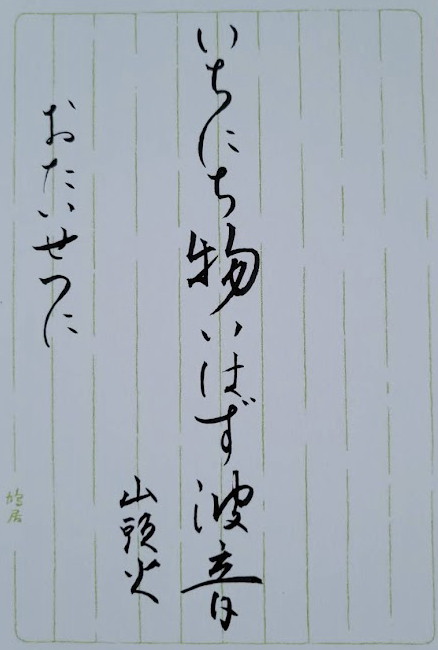 いちにち物いはず波音
山頭火
おたいせつに
鳩居